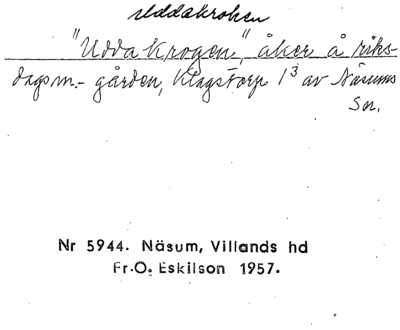 Uddakroken
"Udda Krogen", åker å riks-
dagsm.- gården, Klagstorp 1³ av Näsums
Sn.
Nr 5944. Näsum, Villands hd
Fr.O. Eskilson 1957.